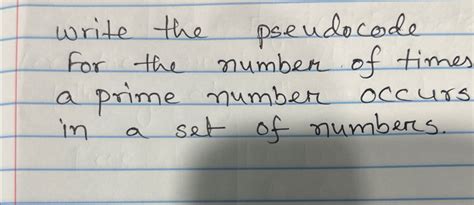 write the pseudocode
for the number of times
a prime number occurs
in a set of numbers.